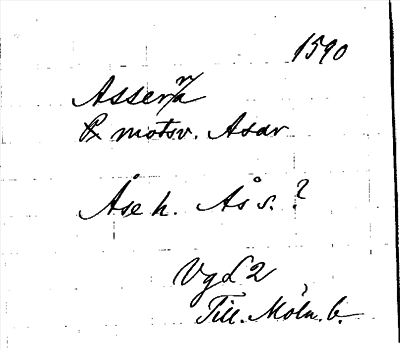 1590
Asserna
motsv. Asar
Åse h. Ås s. ?
VgL 2
Till. Möln. b.